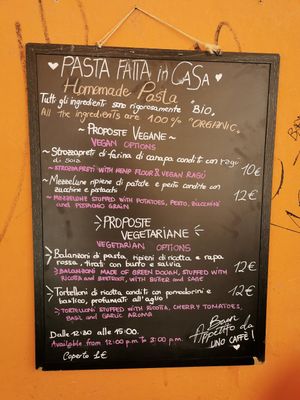 PASTA FATTA in CASA
Homemade Pasta
Tutti gli ingredienti sono rigorosamente "Bio".
All the ingredients are 100% "ORGANIC".
~ PROPOSTE VEGANE ~
VEGAN OPTIONS
~ Strozzapreti di farina di canapa conditi con ragù
di soia 10€
~ STROZZAPRETI WITH HEMP FLOUR & VEGAN RAGÙ
~ Mezzelune ripiene di patate e pesto condite con
zucchine e pistacchi 12€
~ MEZZELUNE STUFFED WITH POTATOES, PESTO, ZUCCHINI
AND PISTACHIO GRAIN
~ PROPOSTE
VEGETARIANE ~
VEGETARIAN OPTIONS
~ Balanzoni di pasta, ripieni di ricotta e rapa
rossa, tirati con burro e salvia 12€
~ BALANZONI MADE OF GREEN DOUGH, STUFFED WITH
RICOTTA AND BEETROOT, WITH BUTTER AND SAGE
~ Tortelloni di ricotta conditi con pomodorini e
basilico, profumati all'aglio 12€
~ TORTELLONI STUFFED WITH RICOTTA, CHERRY TOMATOES,
BASIL AND GARLIC AROMA
Dalle 12:30 alle 15:00.
Available from 12:00 p.m to 3:00 p.m.
Coperto 1€
Buon
Appetito da
UNO CAFFÈ!